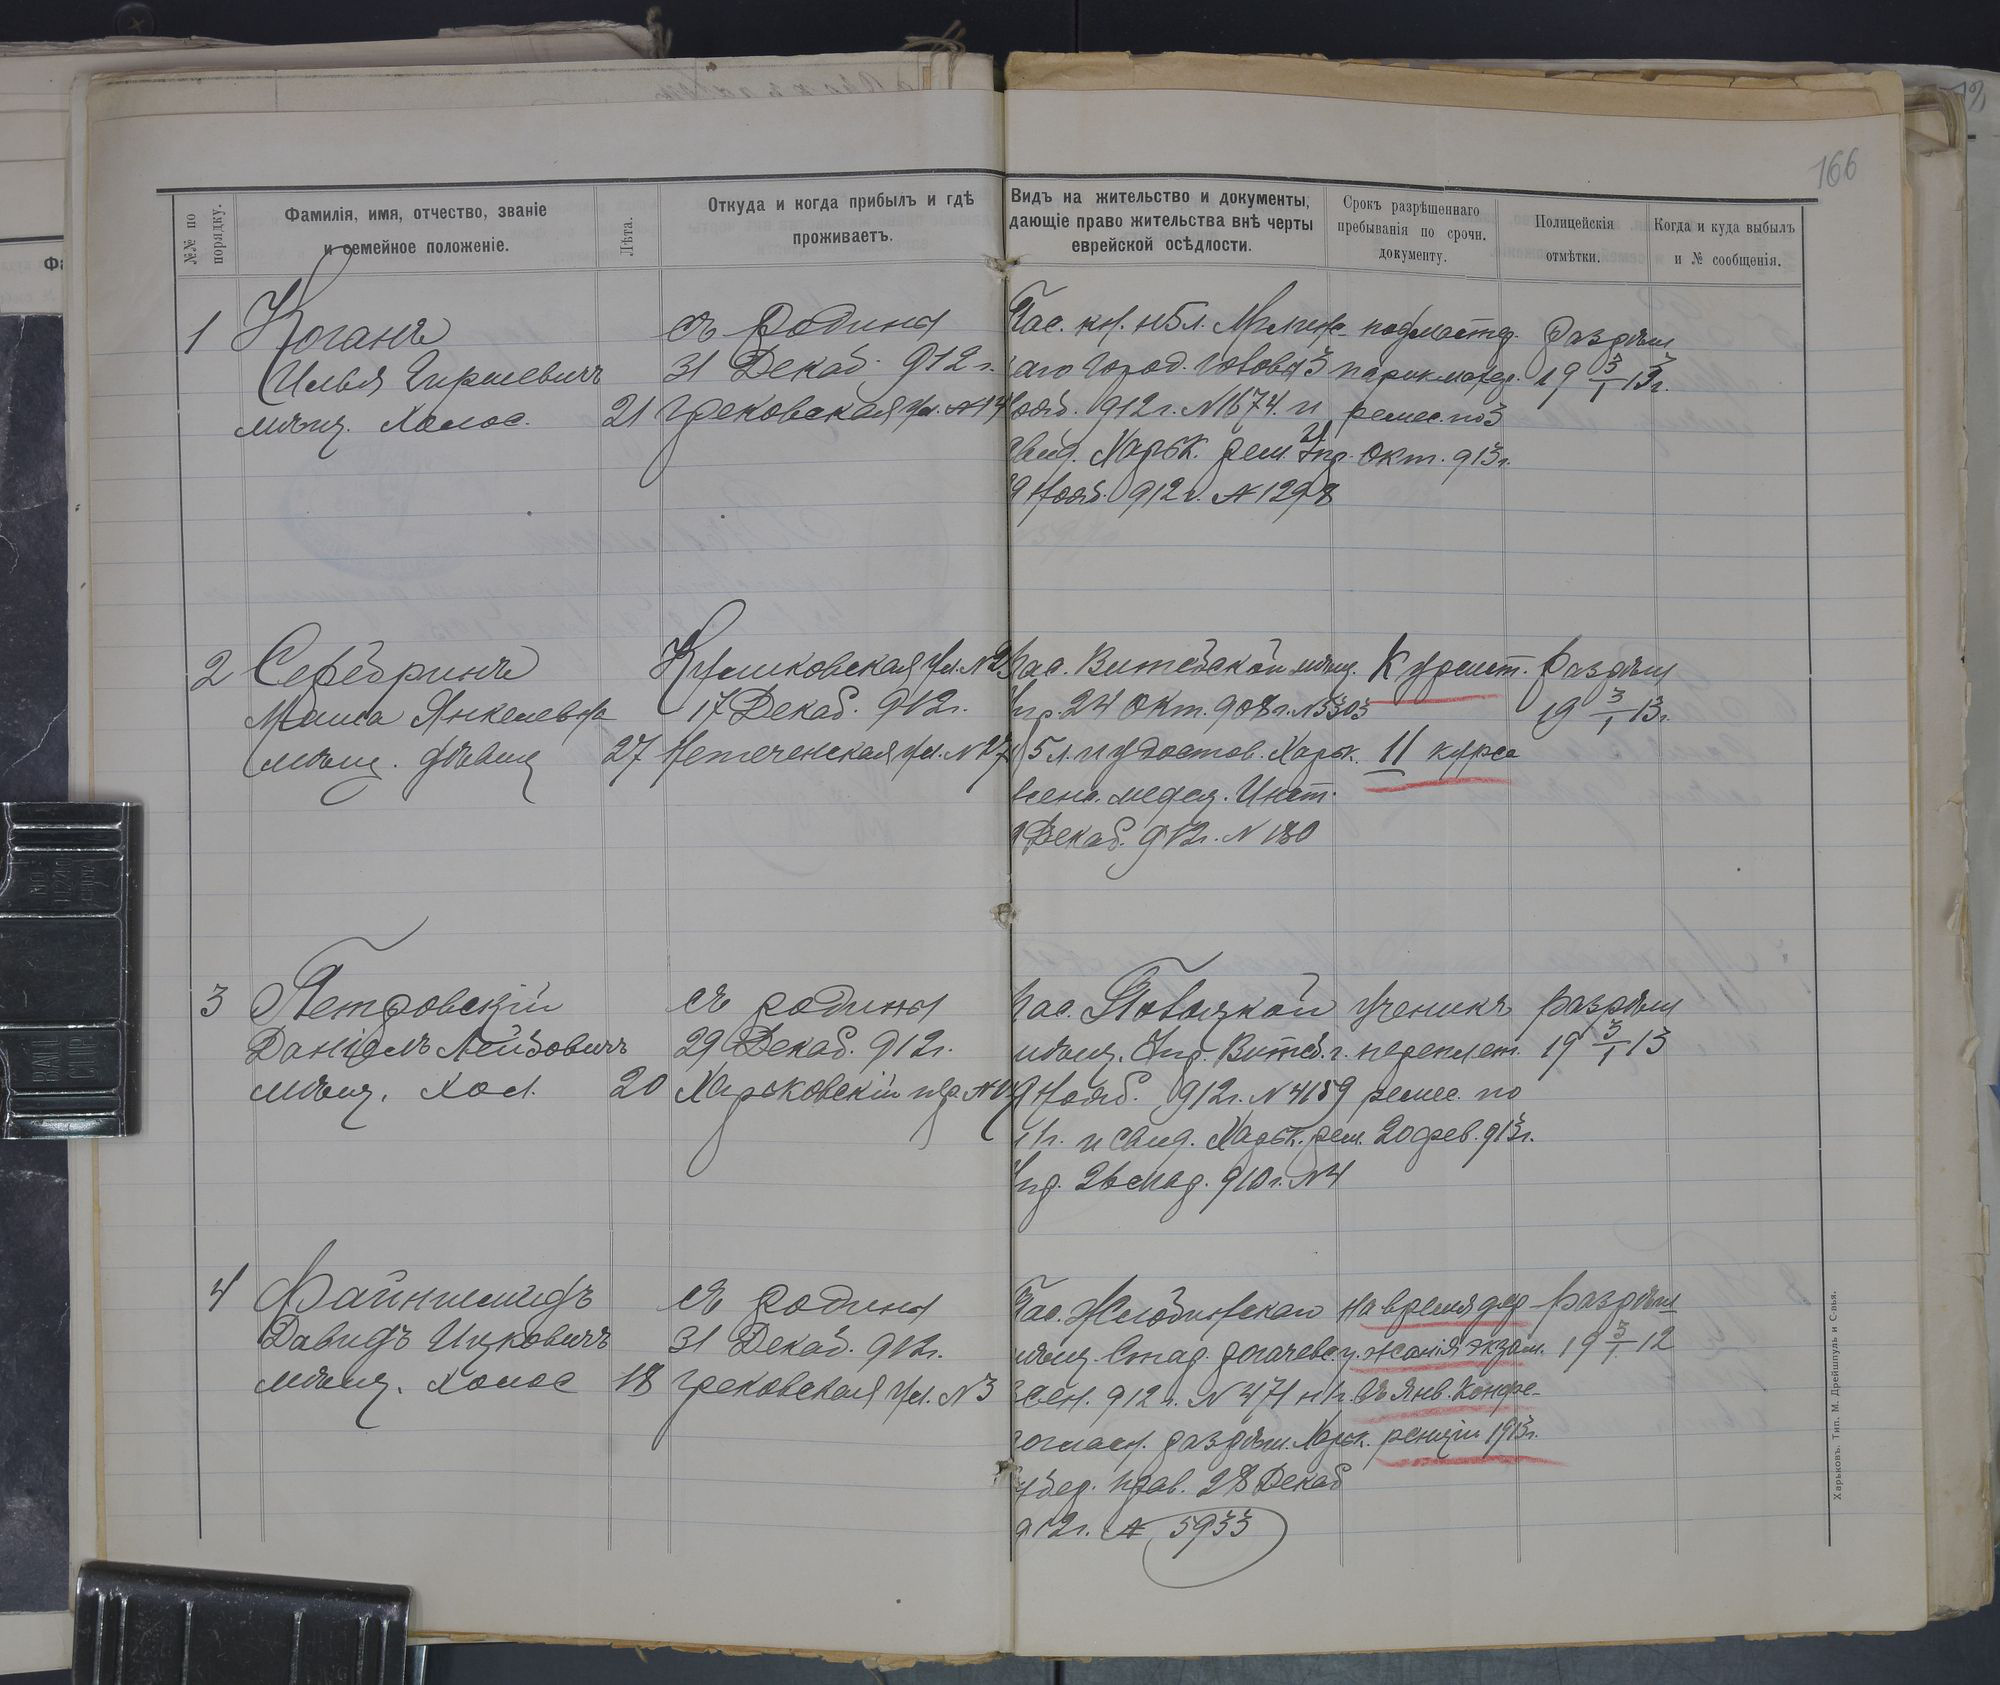 166
№№ по порядку.
Фамилія, имя, отчество, званіе
и семейное положеніе.
Лѣта.
Откуда и когда прибылъ и гдѣ
проживаетъ.
Видъ на жительство и документы,
дающіе право жительства внѣ черты
еврейской осѣдлости.
Срокъ разрѣшеннаго
пребыванія по срочн.
документу.
Полицейскія
отмѣтки.
Когда и куда выбылъ
и № сообщенія.
1
Коганъ
Илья Гиршевичъ
мѣщ. Холос.
21
съ родины
31 Декаб. 912 г.
Грековская ул. №14
Пас. кн.
Город. Головы 3
Нояб. 912 г. №1674. и
Свид. Харьк. рем. Упр.
9 Нояб. 912 г. № 1298
подмастер.
парикмахер.
ремес. по 3
Окт. 913 г.
Разрѣш
19 3/I 13 г.
2
Серебринъ
Маша Янкелевна
мѣщ. дѣвиц
27
17 Декаб. 912 г.
Нетеченская ул. №27
Пас. Витебской мѣщ.
Упр. 24 Окт. 908 г. №5303
5 л. и удостов. Харьк.
женс. медиц. Инст.
Декаб. 912 г. № 180
Курсист.
II курса
Разрѣш
19 3/I 13 г.
3
Петровскій
Даніель Лейзовичъ
мѣщ. Хол.
20
съ родины
29 Декаб. 912 г.
Харьковскій пер.
Пас.
мѣщ. Упр. Витеб. г.
9 Нояб. 912 г. №4159
и Свид. Харьк. рем.
Упр. 26 Мар. 910 г. №4
Ученикъ
переплет.
ремес. по
20 фев. 913 г.
Разрѣш
19 3/I 13
4
Файншмидъ
Давидъ Ицковичъ
мѣщ. Холос
18
съ родины
31 Декаб. 912 г.
Грековская ул. №3
Пас. Жлобинскаго
мѣщ. Стар. Рогачевс. у.
Сен. 912 г. № 471 н 1 г.
согласн. разрѣш. Харьк.
Губер. прав. 28 Декаб
912 г. № 5933
на время дер
жанія экзам.
въ Янв. Конфе-
ренціи 1913 г.
Разрѣш
19 3/I 12
Харьковъ. Тип. М. Дрейшпуль и С-вья.